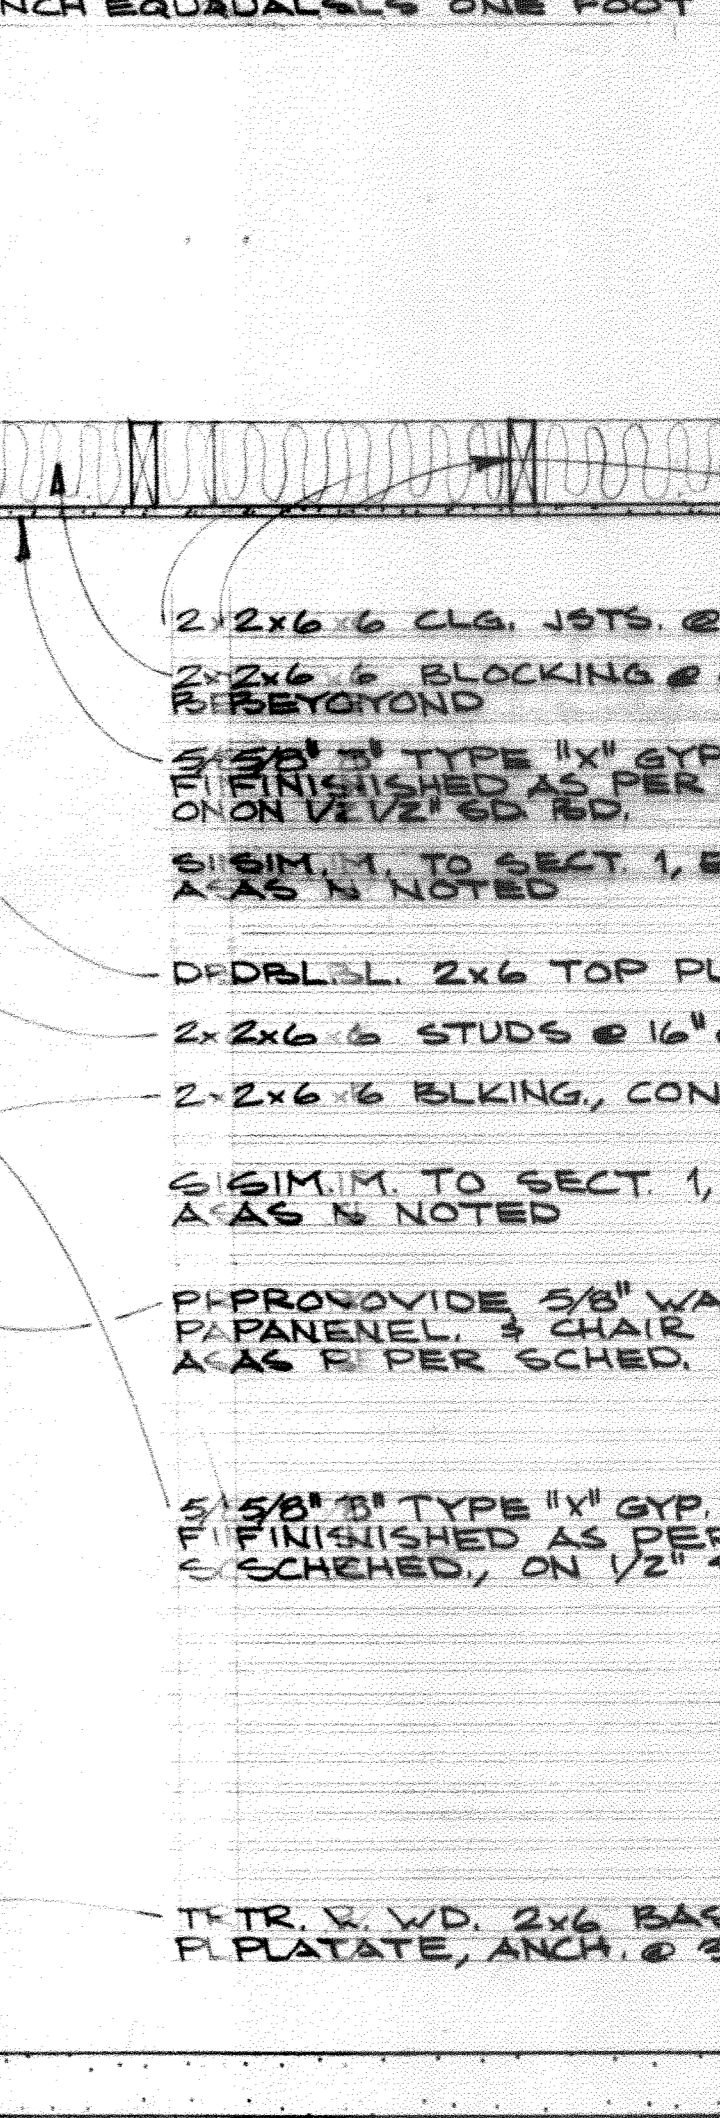 NCH EQUALS ONE FOOT
2x6 CLG. JSTS. @
2x6 BLOCKING @
BEYOND
5/8" TYPE "X" GYP
FINISHED AS PER
ON 1/2" SD. BD.
SIM. TO SECT. 1, E
AS NOTED
DBL. 2x6 TOP PL
2x6 STUDS @ 16"
2x6 BLKING., CON
SIM. TO SECT. 1,
AS NOTED
PROVIDE 5/8" WA
PANEL. & CHAIR
AS PER SCHED.
5/8" TYPE "X" GYP.
FINISHED AS PER
SCHED., ON 1/2"
TR. WD. 2x6 BAS
PLATE, ANCH. @ 3